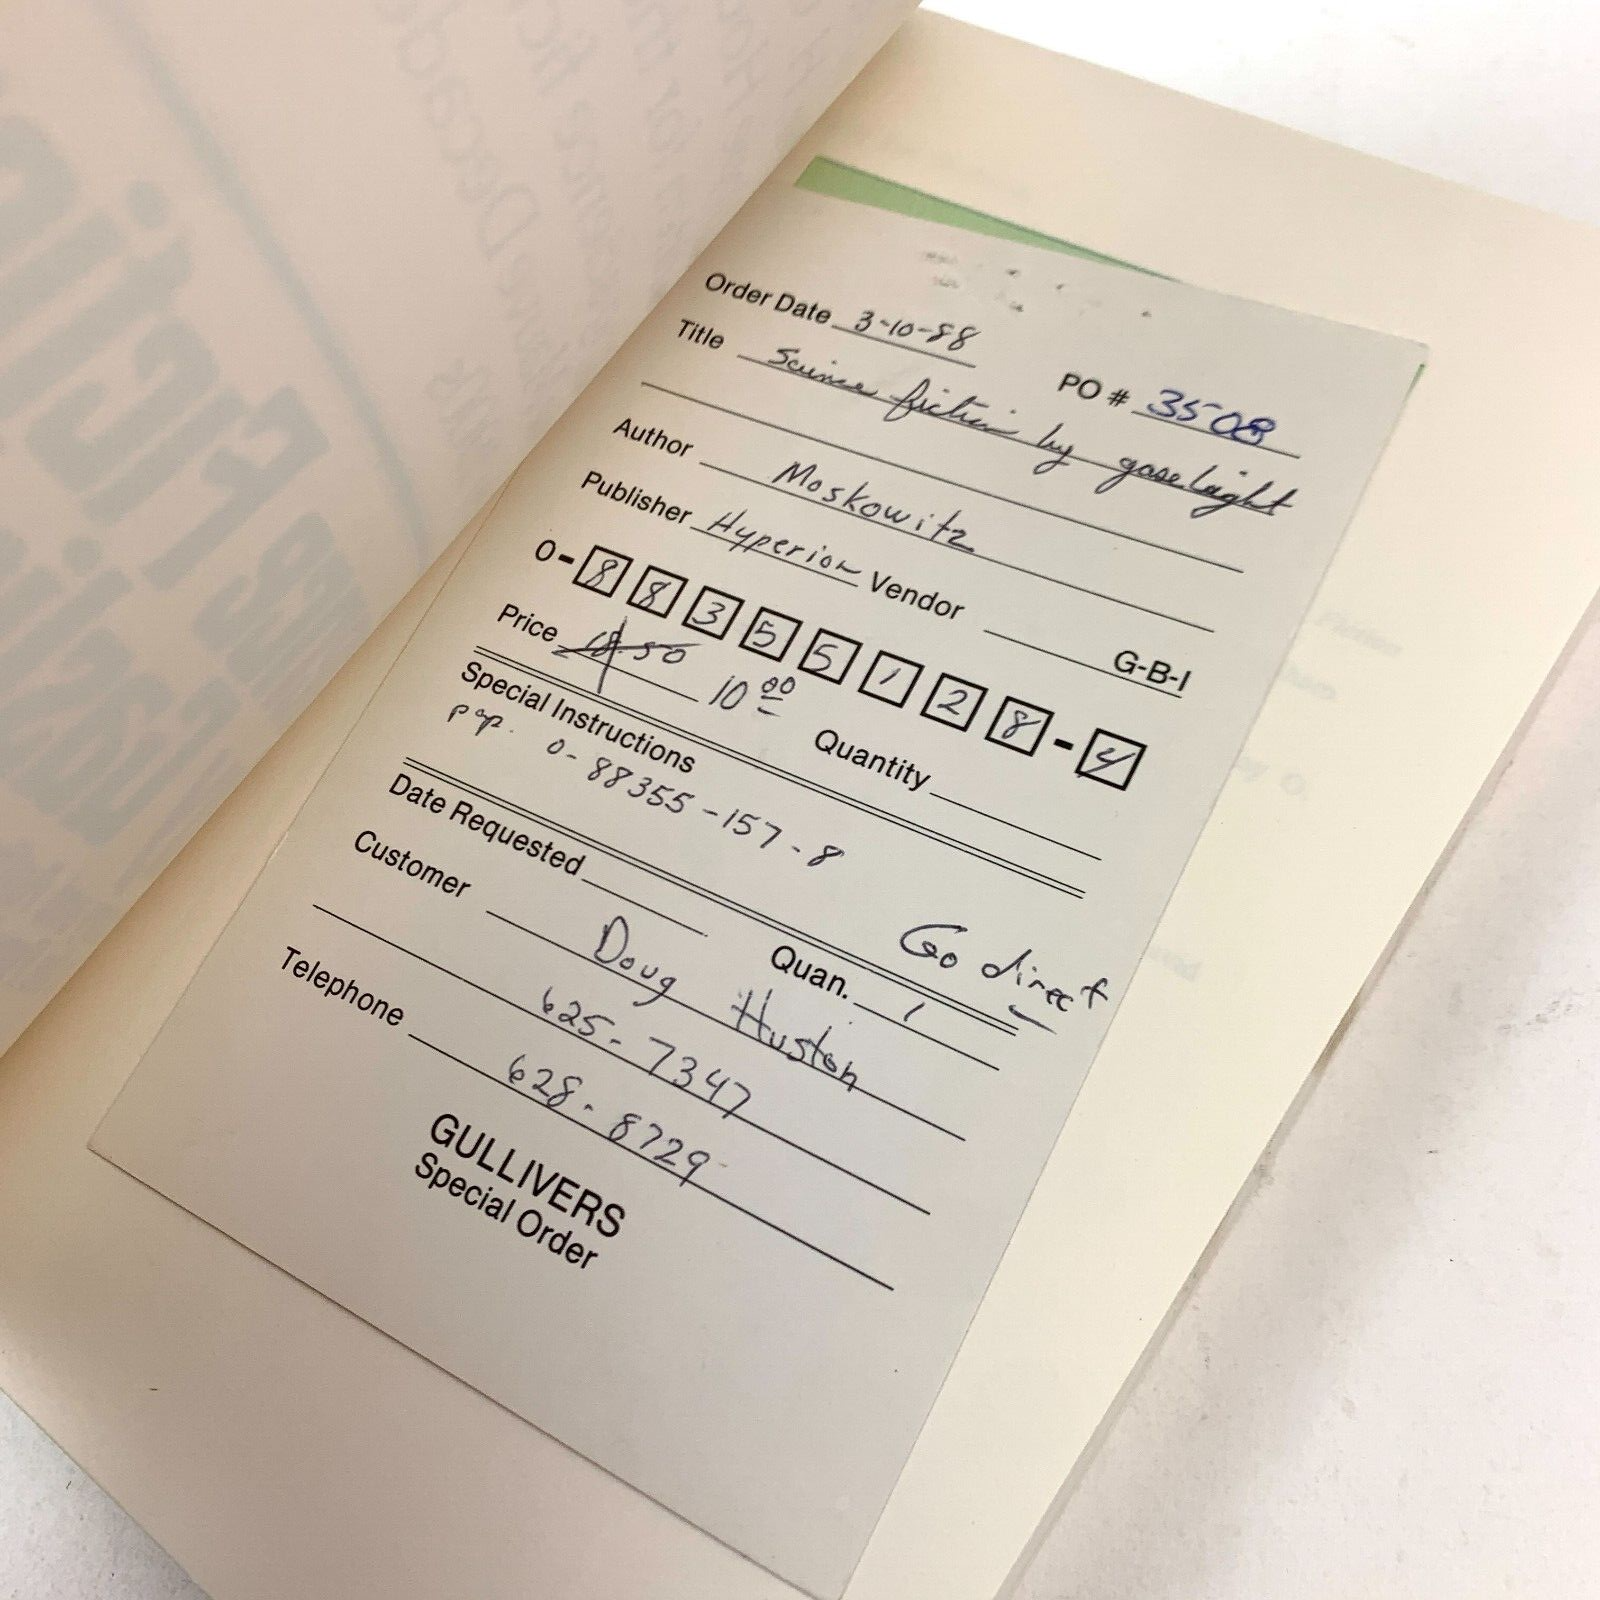 Order Date 3-10-88
PO # 3508
Title Science fiction by gaselight
Author Moskowitz
Publisher Hyperion Vendor
G-B-I
0-88355128-4
Price 18.50 10 00
Quantity
Special Instructions
pap. 0-88355-157-8
Go direct
Date Requested Quan. 1
Customer Doug Huston
625-7347
Telephone 628-8729
GULLIVERS
Special Order